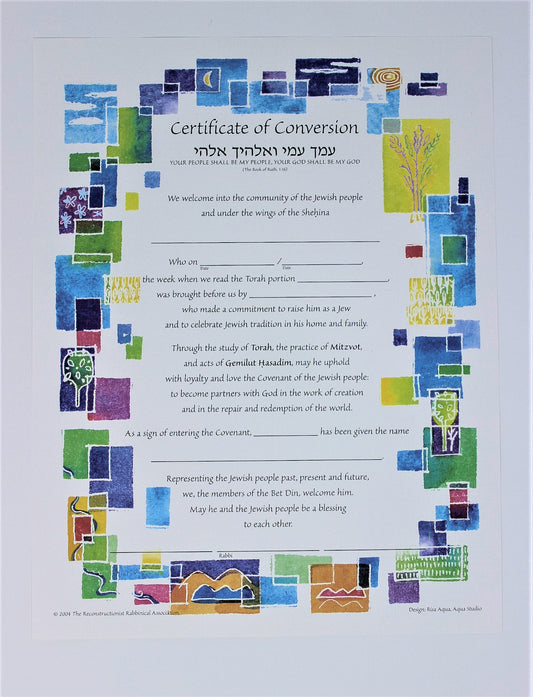 Certificate of Conversion
עמך עמי ואלהיך אלהי
YOUR PEOPLE SHALL BE MY PEOPLE, YOUR GOD SHALL BE MY GOD
(The Book of Ruth, 1:16)
We welcome into the community of the Jewish people
and under the wings of the Sheḥina
Who on / ,
Date Date
the week when we read the Torah portion ,
was brought before us by ,
who made a commitment to raise him as a Jew
and to celebrate Jewish tradition in his home and family.
Through the study of Torah, the practice of Mitzvot,
and acts of Gemilut Ḥasadim, may he uphold
with loyalty and love the Covenant of the Jewish people:
to become partners with God in the work of creation
and in the repair and redemption of the world.
As a sign of entering the Covenant, has been given the name
.
Representing the Jewish people past, present and future,
we, the members of the Bet Din, welcome him.
May he and the Jewish people be a blessing
to each other.
Rabbi
© 2004 The Reconstructionist Rabbinical Association. Design: Riza Aqua, Aqua Studio